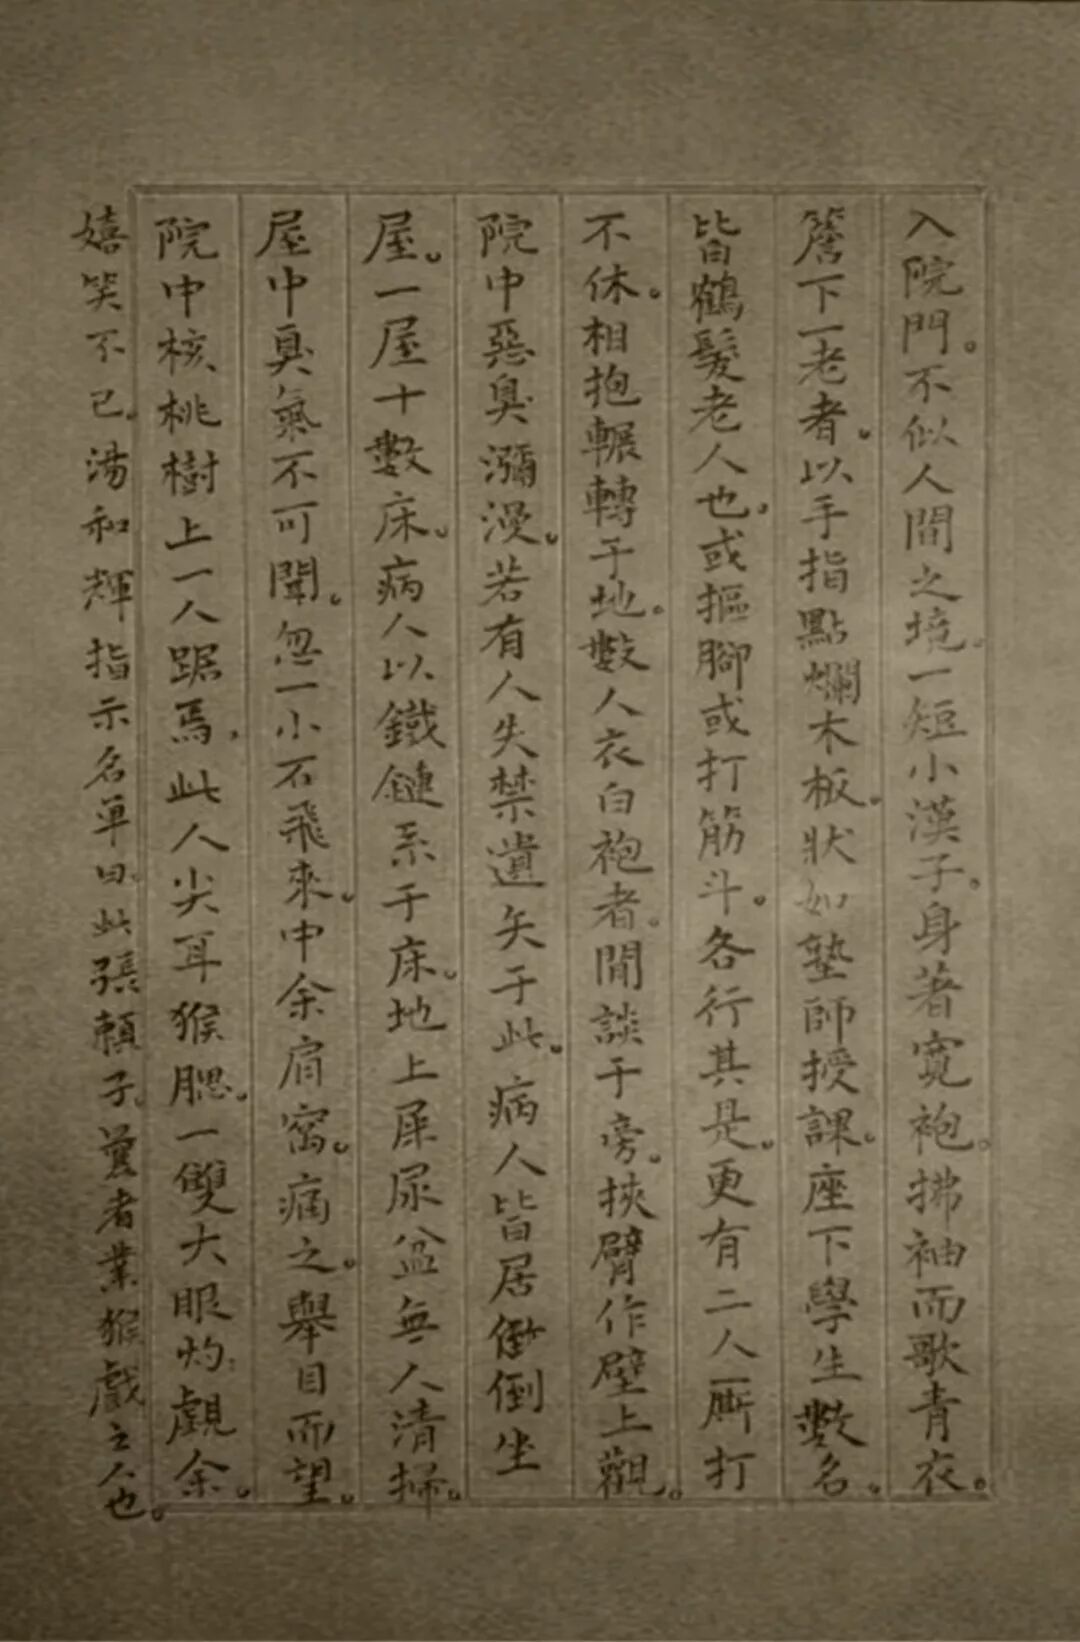 入院門。不似人間之境。一短小漢子。身著寬袍。拂袖而歌青衣。
簷下一老者。以手指點爛木板。狀如塾師授課。座下學生數名。
皆鶴髮老人也。或摳腳或打筋斗。各行其是。更有二人廝打
不休。相抱輾轉于地。數人衣白袍者。閒談于旁。挾臂作壁上觀。
院中惡臭瀰漫。若有人失禁遺矢于此。病人皆居倒坐
屋。一屋十數床。病人以鐵鏈系于床。地上屎尿盆無人清掃。
屋中臭氣不可聞。忽一小石飛來。中余肩窩。痛之。舉目而望。
院中核桃樹上一人踞焉，此人尖耳猴腮。一雙大眼灼灼覷余。
嬉笑不已。湯和輝指示名單曰。此張賴子。曩者業猴戲之人也。